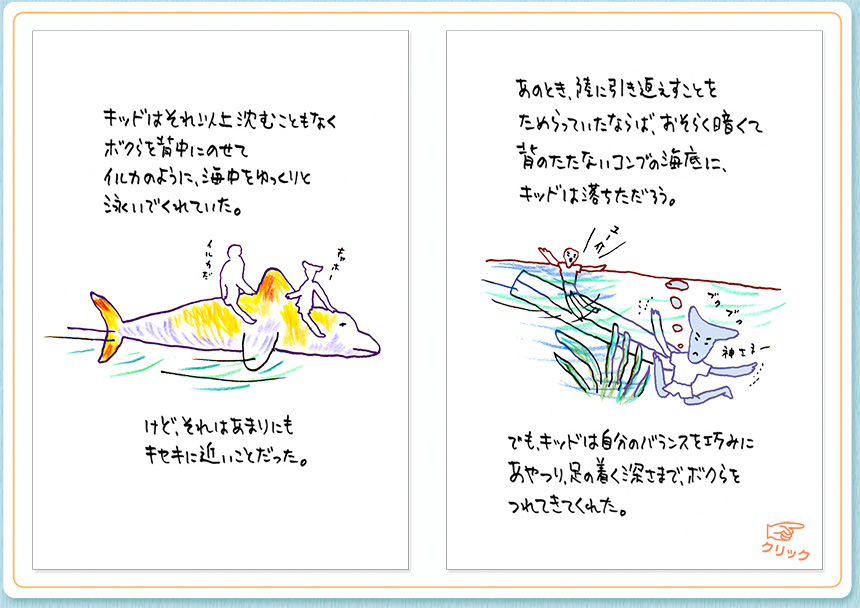 キッドはそれ以上沈むこともなく
ボクらを背中にのせて
イルカのように、海中をゆっくりと
泳いでくれていた。
イルカだ
キャホー
けど、それはあまりにも
キセキに近いことだった。
あのとき、陸に引き返えすことを
ためらっていたならば、おそらく暗くて
背のたたないコンブの海底に、
キッドは落ちただろう。
ブク
ブク
神さまー
でも、キッドは自分のバランスを巧みに
あやつり、足の着く深さまで、ボクらを
つれてきてくれた。
クリック